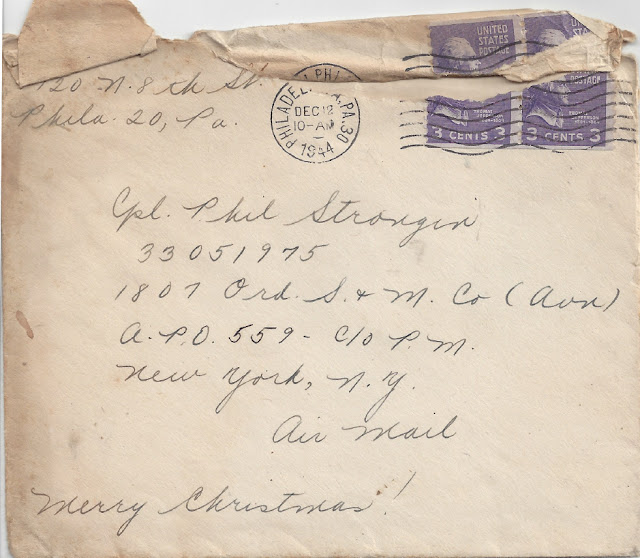 UNITED
STATES
POSTAGE
POSTAGE
120 N. 8th St.
Phila. 20, Pa.
PHILADELPHIA, PA. 30
DEC 12
10-AM
1944
THOMAS
JEFFERSON
3 CENTS 3
3 CENTS 3
Cpl. Phil Strongin
33051975
1807 Ord. S. & M. Co (Avn)
A.P.O. 559 - C/O P.M.
New York, N.Y.
Air Mail
Merry Christmas!